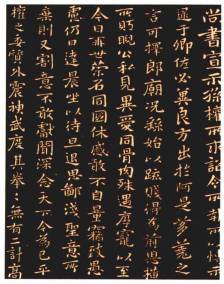 尚書宣示孫權所求詔令所報所以博示
逮于卿佐必冀良方出於阿是芻蕘之
言可擇郎廟況繇始以疏賤得為前恩橫
所盱睨公私見異愛同骨肉殊遇厚寵以至
今日再世榮名同國休慼敢不自量竊致愚
慮仍日達晨坐以待旦退思鄙淺聖意所
棄則又割意不敢獻聞深念天下今為已平
權之委質外震神武度其拳拳無有二計高